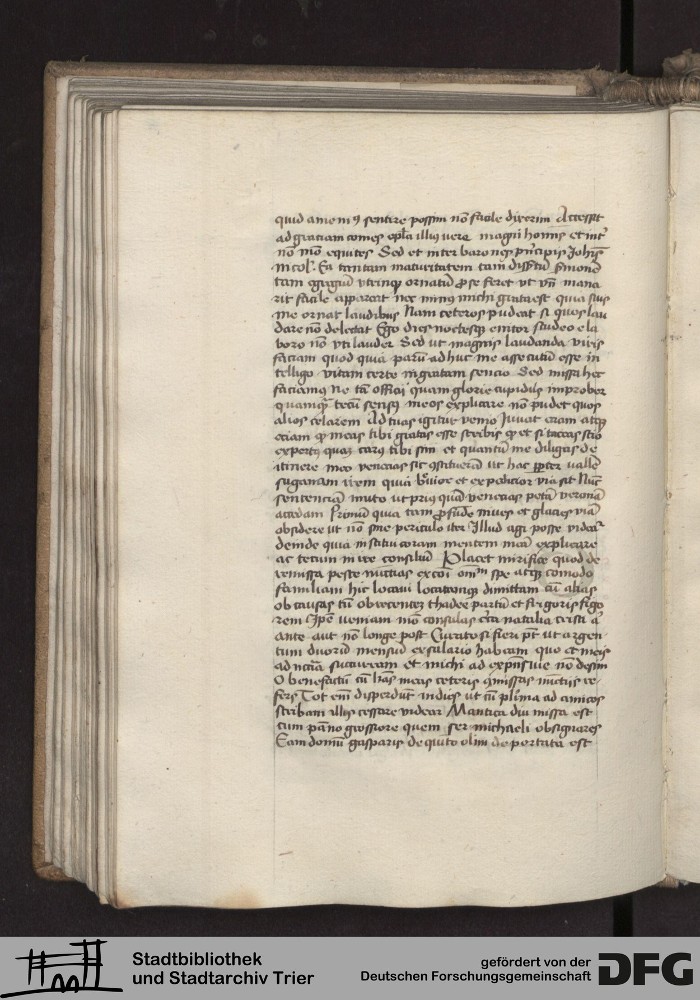 quid ame in 9 sentire possim nō facile dixerim Accessit
ad gratiam comes ep̄la illius vere magni homīs et int̄
nō mō equites Sed et inter barones prīcipis Johīs
nicol' Ea tantam maturitatem tam sermonē
tam egregiū utrinqȝ ornatū p̄ se feret ut mana
rit facile appareat nec minus michi grata est quia suis
me ornat laudibus Nam ceteros pudeat si quos lau
dare nō delectat Ego dies noctesqȝ enitor studeo ela
boro nō uti lauder Sed ut magnis laudanda viris
faciam quod quia parū adhuc me assecutū esse in
telligo vitam certe ingratam sencio Sed missa hec
faciamus Ne tā officii quam glorie cupidus improber
quamqȝ tecū sensus meos explicare nō pudet quos
alios celarem Ad tuas igitur venio Juvat eram atqȝ
eciam qȝ meas tibi gratas esse scribis qȝ et si taceas scio
expertus quaȝ carus tibi sim et quantū me diligas de
itinere meo venecias sic 9stitueram ut hac ꝓpter vallē
suganam irem quia b'uior et expedicior via sit Nūc
sentenciā muto ut prius quā venecias petā veronā
accedam Primū quia tam ꝓfūde niues et glacies viā
obsidere ut nō sine periculo iter illud agi posse videat'
deinde quia institueram mentem meā explicare
ac tecum inire consiliū Placet mirifice quod de
remissa peste nūctias excōi spe atqȝ comodo
familiam hic locaui locatamqȝ dimittam cū alias
ob causas tū ob recentez thadee partū et frigoris rigo
rem Ipse veniam mō consulas circa natalia cristi a'
ante aut nō longe post Curato si fieri p̄t ut argen
tum duorū mensiū ex salario habeam quo et meis
ad succurram et michi ad expn̄s vie nō desim
O benefactū cū l'ras meas ceteris 9missas nūctiis re
fers Tot enī disperdūt indies ut cū pl'ima ad amicos
scribam illis cessare videar Mantica diu missa est
cum pāno grossiore quem ser michaeli obsignares
Eam domū gasparis de quito olim deportata est
Stadtbibliothek
und Stadtarchiv Trier
gefördert von der
Deutschen Forschungsgemeinschaft
DFG